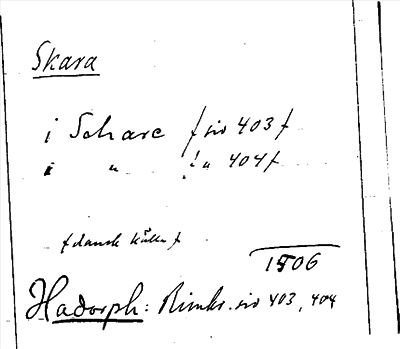 Skara
i Scharc /sid 403/
i " /" 404/
/dansk källa/
1506
Hadorph: Rimkr. sid 403, 404